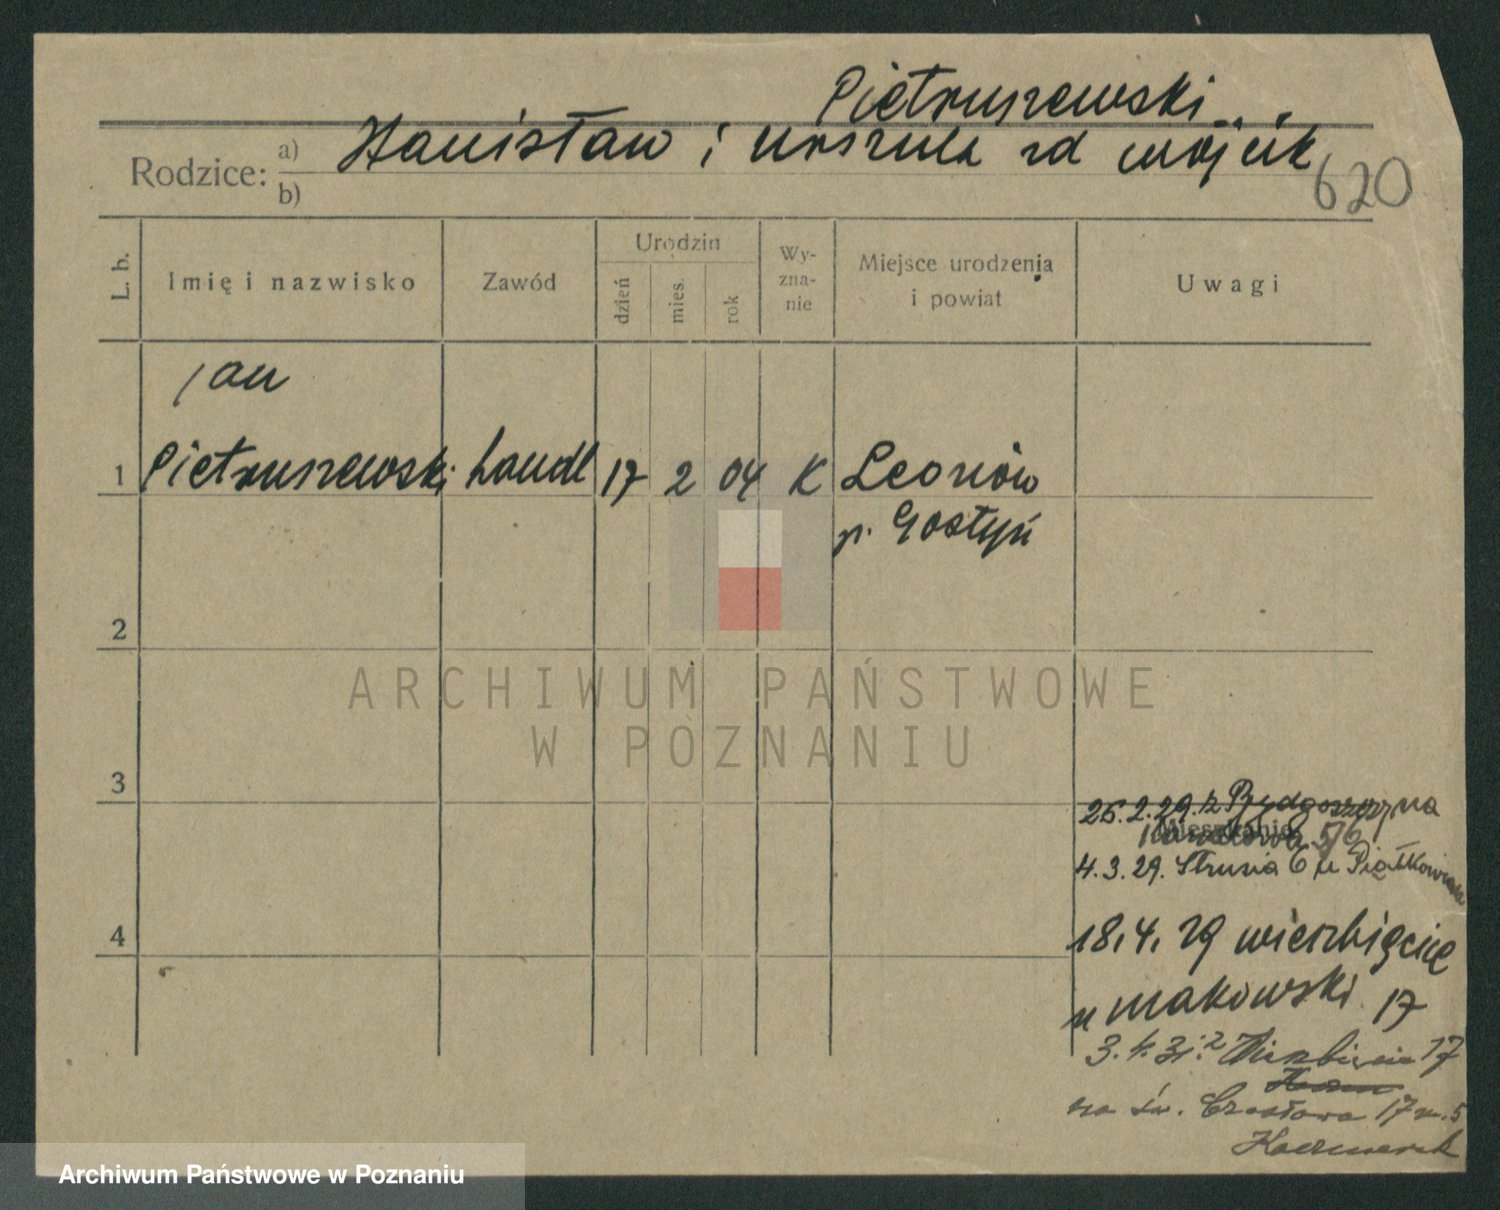 Pietruszewski
Rodzice: a) Stanisław i Urszula zd Wójcik
b)
620
L. b.
Imię i nazwisko
Zawód
Urodzin
dzień
mies.
rok
Wy-
zna-
nie
Miejsce urodzenia
i powiat
Uwagi
Jan
1 Pietruszewski handl 17 2 04 K Leonów
p. Gostyń
2
3
4
26.2.29. z Bydgoszczy na
Mieszkanie 5/6
4.3.29. Strusia 6 u Piątkowiak
18.4.29 Wierzbięcice
u Makowski 17
3.4.31. z Wierzbięcic 17
na św. Czesława 17 m. 5
Kaczmarek
ARCHIWUM PAŃSTWOWE
W POZNANIU
Archiwum Państwowe w Poznaniu